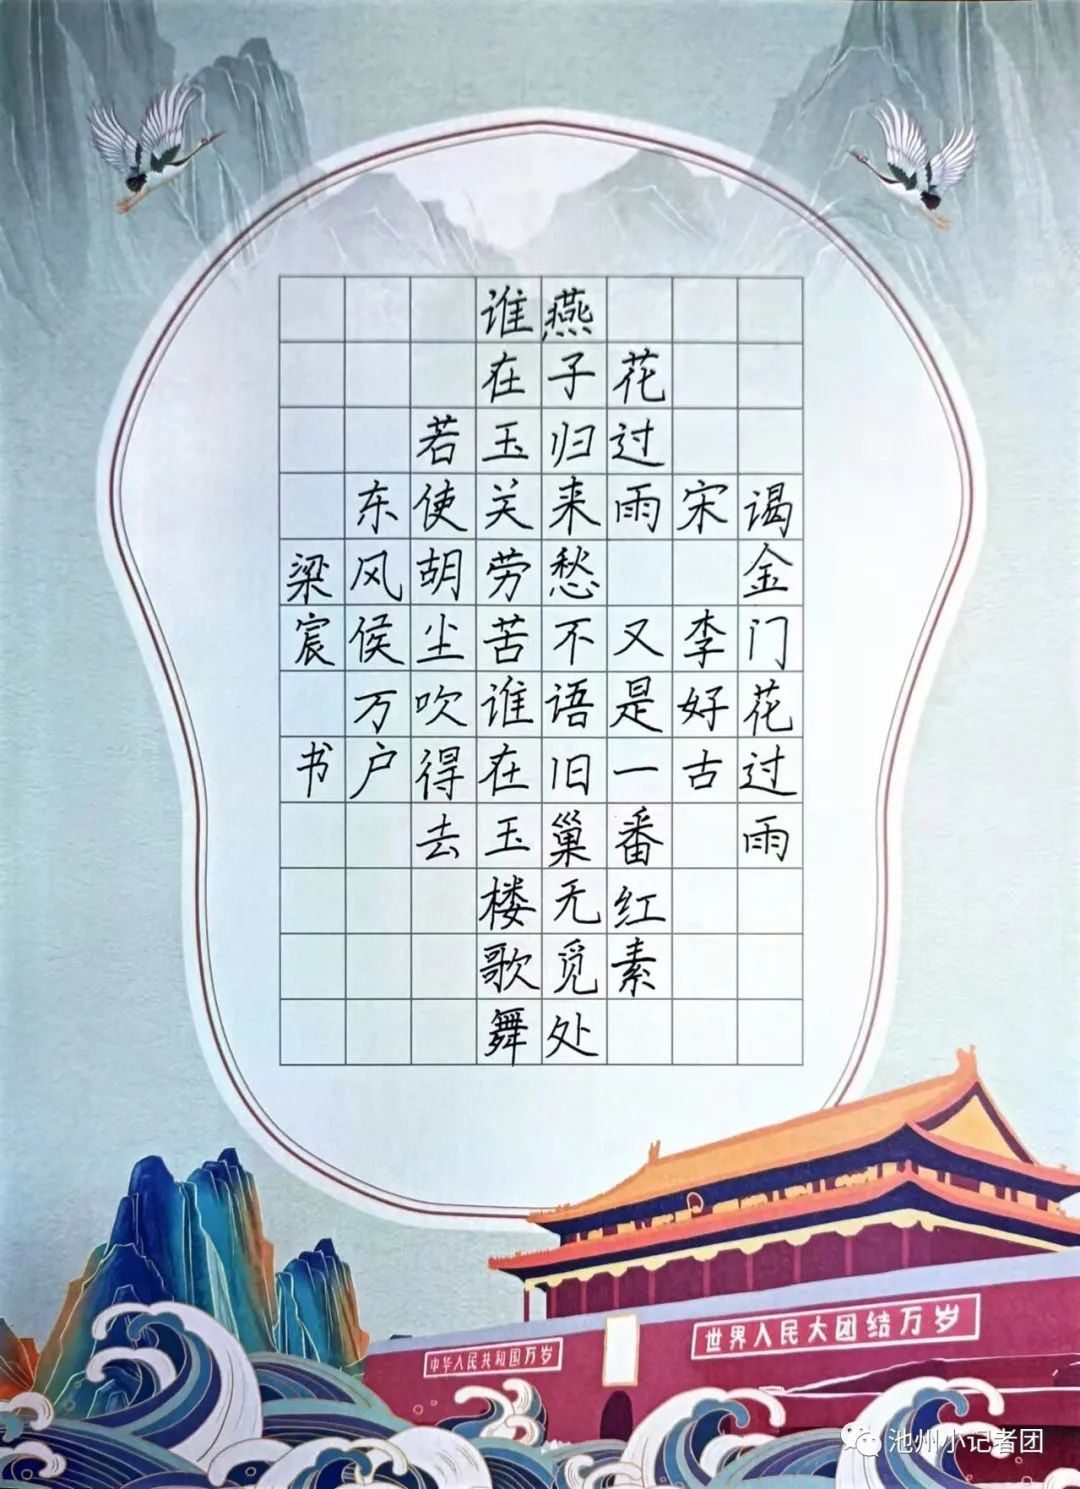 谒金门花过雨
宋 李好古
花过雨 又是一番红素
燕子归来愁不语旧巢无觅处
谁在玉关劳苦谁在玉楼歌舞
若使胡尘吹得去
东风侯万户
梁宸 书
中华人民共和国万岁
世界人民大团结万岁
池州小记者团